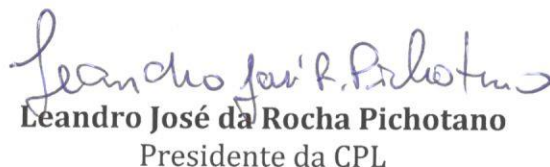 Leandro José R. Pichotano
Leandro José da Rocha Pichotano
Presidente da CPL